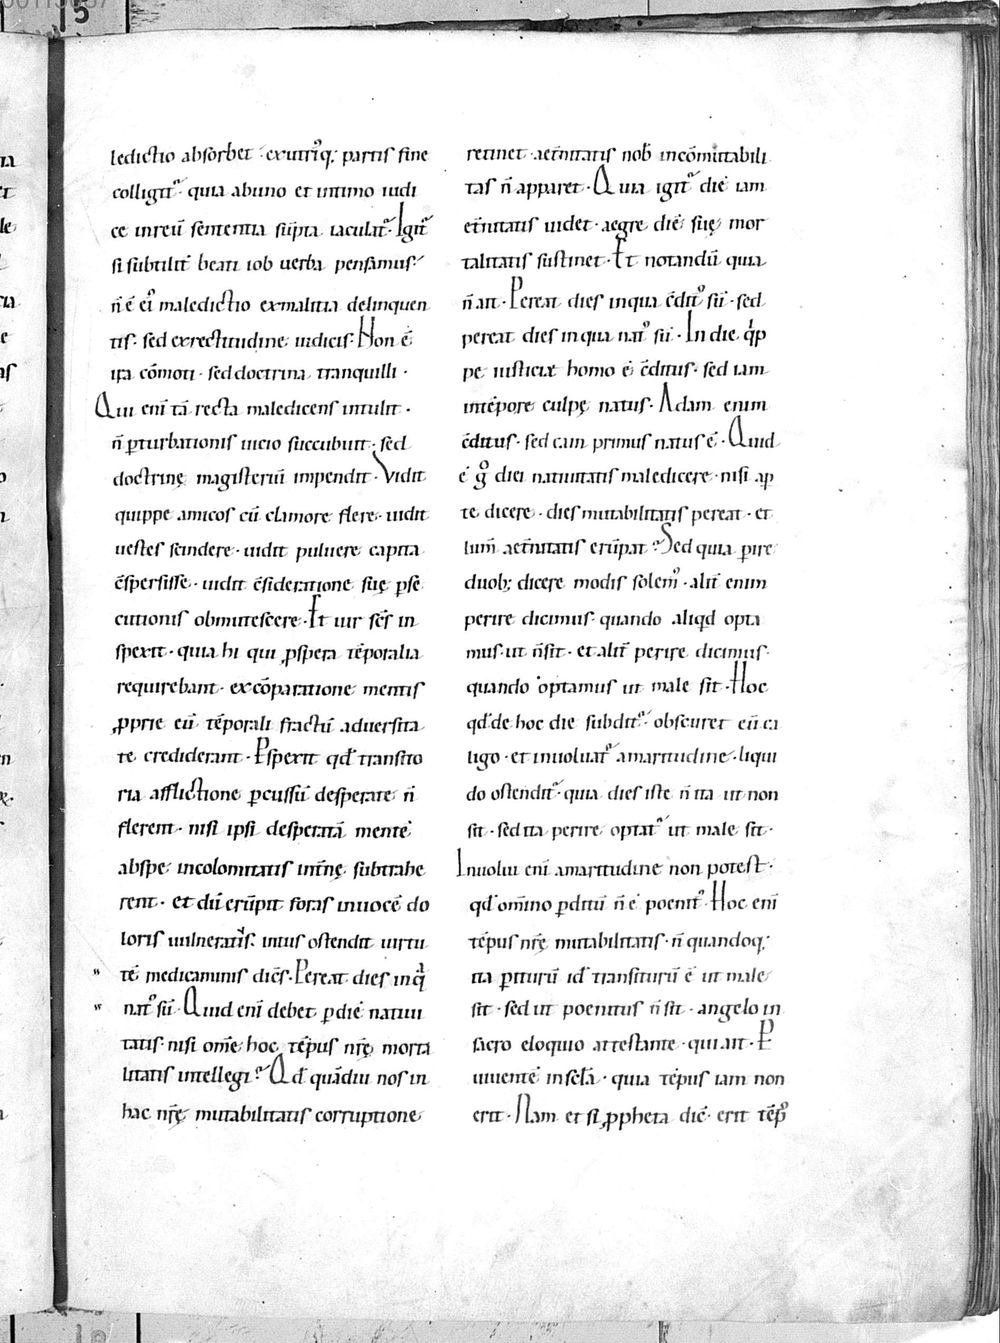 ledictio absorbet · ex utriq; partis fine
colligit᷑ · quia ab uno et intimo iudi
ce in reū sententia sūpta iaculat᷑ · Igit᷑
si subtilit̄ beati iob uerba pensamus ·
n̄ ē ei᷒ maledictio ex malitia delinquen
tis · sed ex rectitudine iudicis · Non ē
ira cōmoti · sed doctrina tranquilli ·
Qui eni tā recta maledicens intulit ·
n̄ ꝑturbationis uicio succubuit · sed
doctrinę magisteriū impendit · Vidit
quippe amicos cū clamore flere · uidit
uestes scindere · uidit puluere capita
c̄spersisse · uidit c̄sideratione suę ꝑse
cutionis obmutescere · Et uir sc̄s in
spexit · quia hi qui ꝓspera tēporalia
requirebant · ex cōparatione mentis
ꝓprie eū tēporali fractū aduersita
te crediderant · Pspexit qd̄ transito
ria afflictione ꝑcussū desperate n̄
flerent · nisi ipsi desperatā mentē
ab spe incolomitatis int̄nę subtrahe
rent · et dū erūpit foras in uocē do
loris uulneratis · intus ostendit uirtu
tē medicaminis dicēs · Pereat dies in q̇
nat᷒ sū · Quid eni debet ꝑ diē natiui
tatis · nisi om̄e hoc tēpus nr̄ę morta
litatis intellegi · Qd̄ quādiu nos in
hac nr̄ę mutabilitatis corruptione
retinet · aet̄nitatis nob̄ incōmutabili
tas n̄ apparet · Quia igit᷑ diē iam
et̄nitatis uidet · aegre diē suę mor
talitatis sustinet · Et notandū quia
n̄ ait · Pereat dies in qua c̄dit᷒ sū · sed
pereat dies in qua nat᷒ sū · In die q̇ꝑ
pe iusticiæ homo ē c̄ditus · sed iam
in tēpore culpę natus · Adam enim
c̄ditus · sed cain primus natus ē · Quid
ē g̊ diei natiuitatis maledicere · nisi ap
te dicere · dies mutabilitatis pereat · et
lum̄ aet̄nitatis erūpat · Sed quia ꝑire
duob; dicere modis solem᷒ · alit̄ enim
perire dicimus · quando aliqd opta
mus · ut n̄ sit · et alit̄ perire dicimus ·
quando optamus ut male sit · Hoc
qd̄ de hoc die subdit᷑ · obscuret eū ca
ligo · et inuoluat᷑ amaritudine · liqui
do ostendit᷑ · quia dies iste n̄ ita ut non
sit · sed ita perire optat᷑ ut male sit ·
Inuolui eni amaritudine non potest ·
qd̄ om̄ino ꝑditū n̄ ē poenit᷒ · Hoc eni
tēpus nr̄ę mutabilitatis · n̄ quandoq;
ita ꝑiturū id̄ transiturū ē ut male
sit · sed ut poenitus n̄ sit · angelo in
sacro eloquio attestante · qui ait · P
uiuentē in scl̄a · quia tēpus iam non
erit · Nam et si ꝓpheta dic̄ · erit tēp᷒